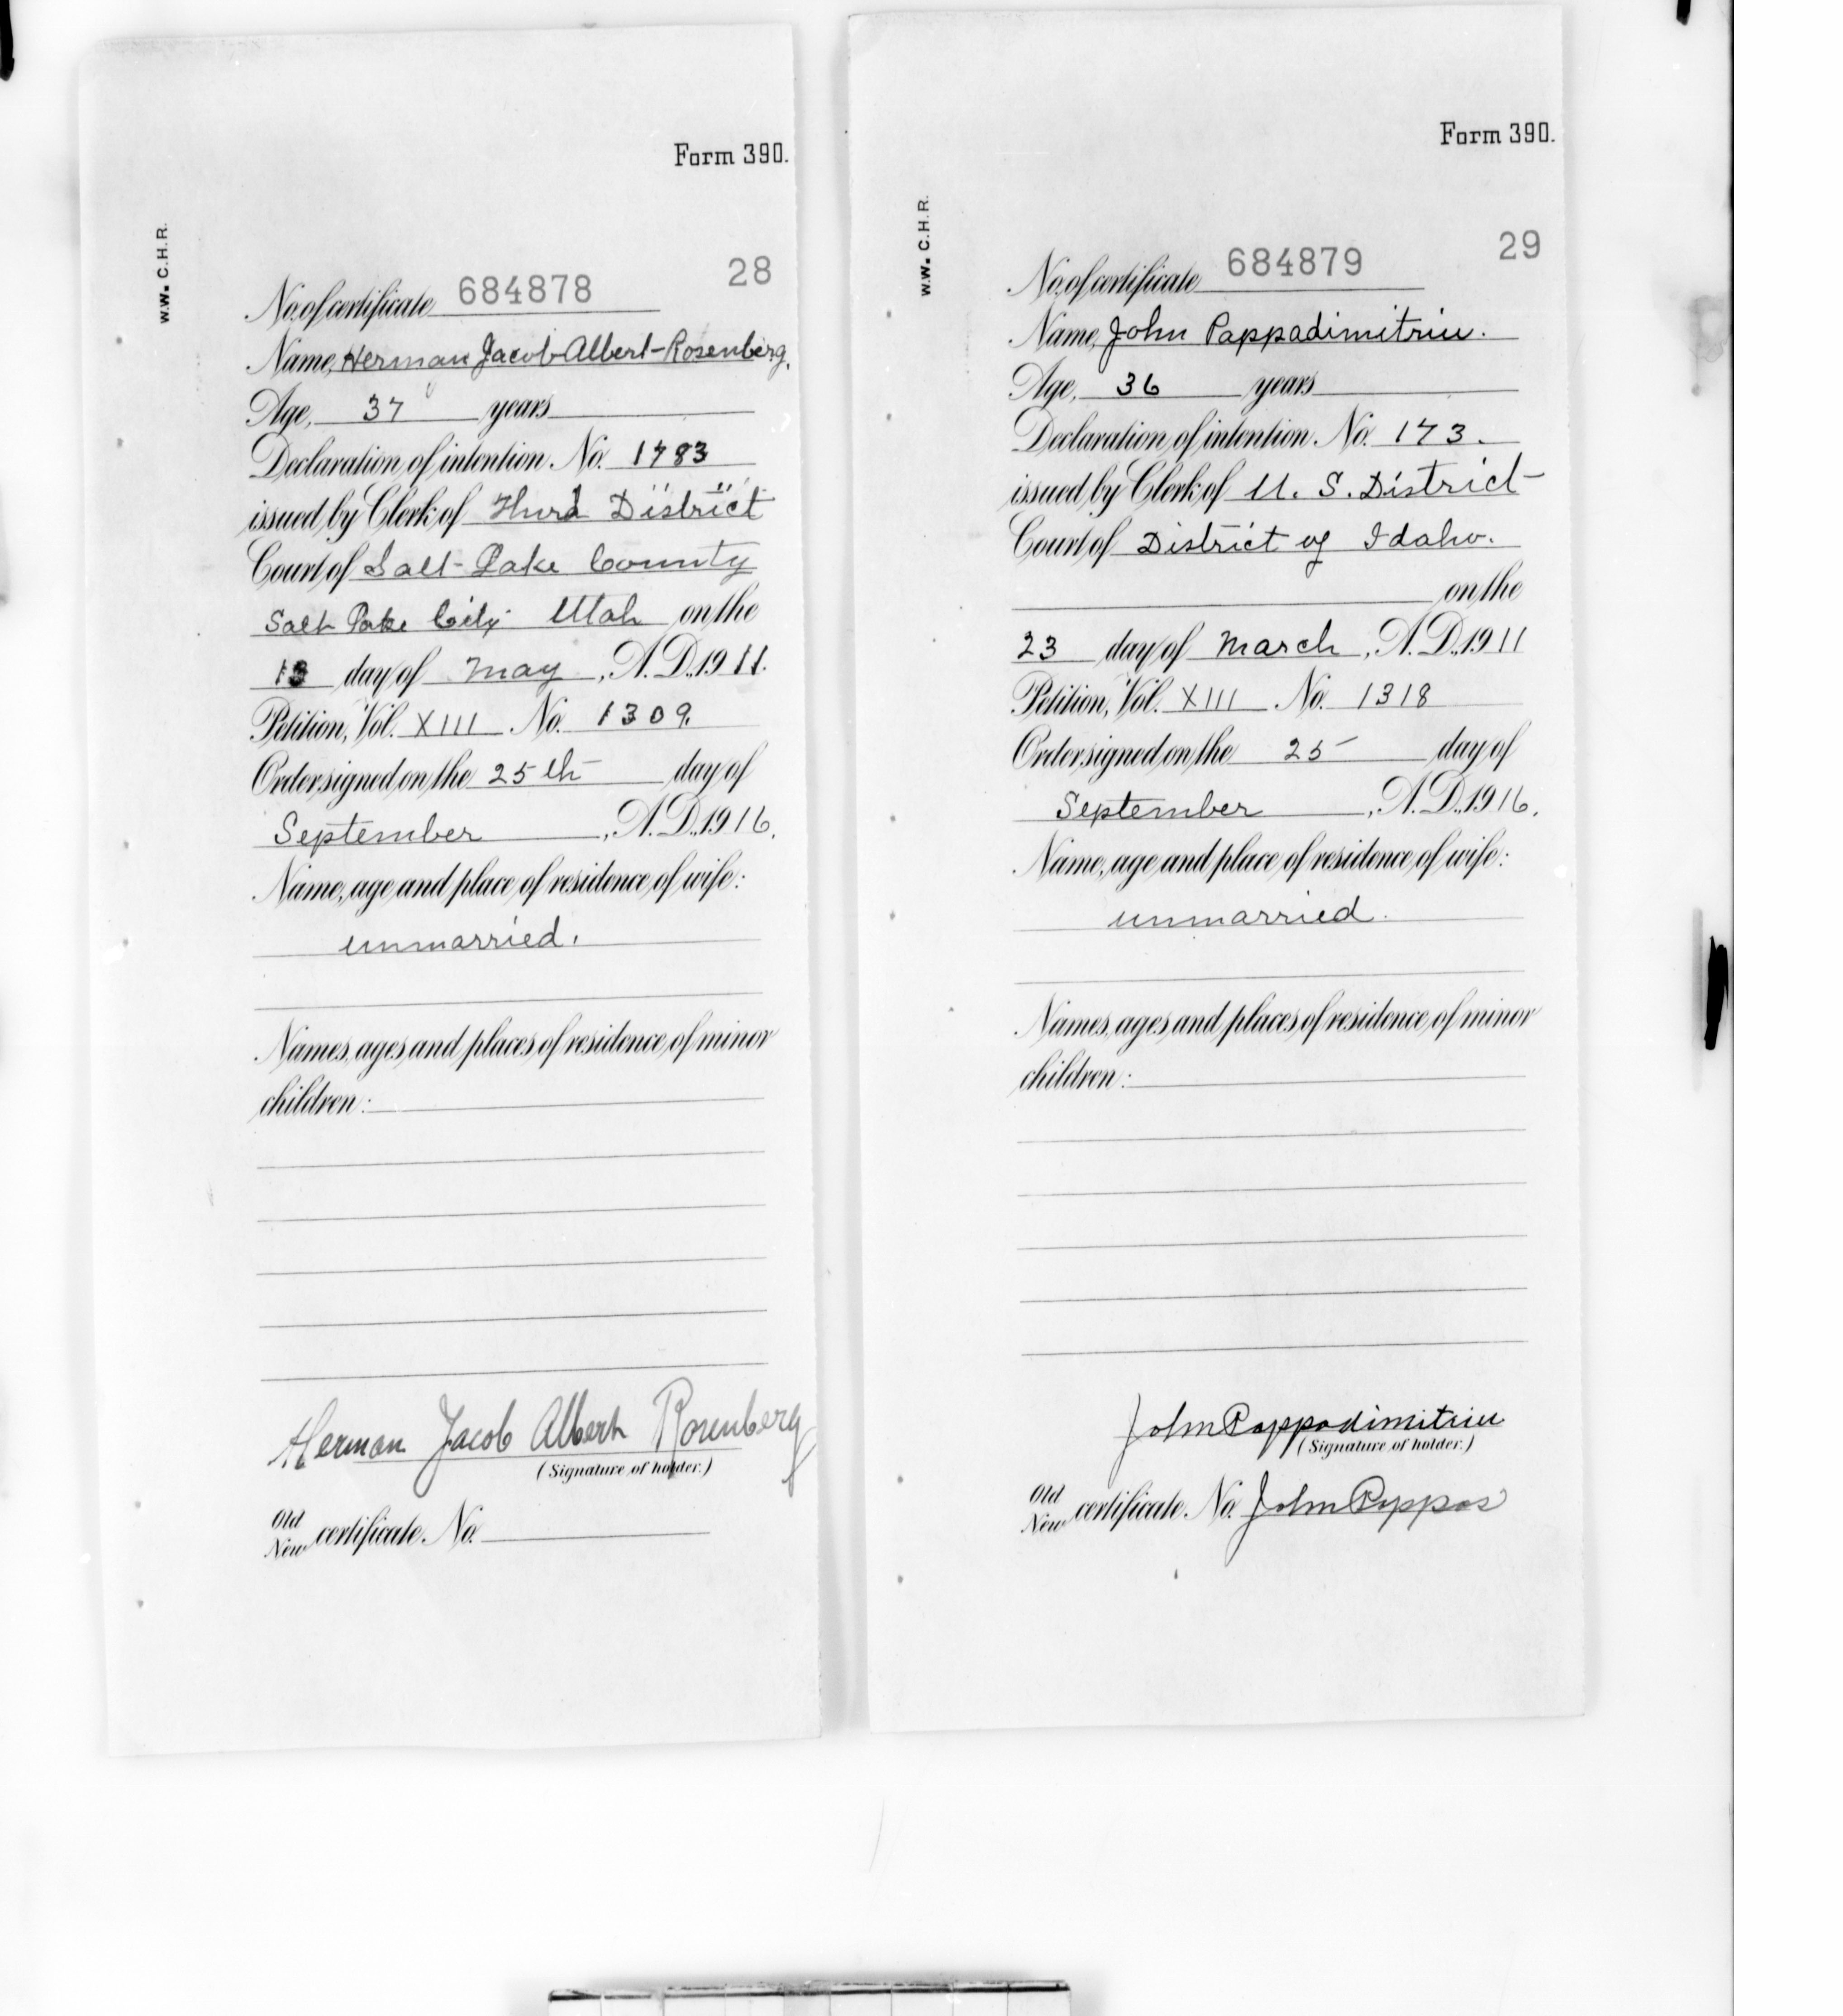 Form 390.
W.W. C.H.R.
28
No. of certificate 684878
Name, Herman Jacob Albert Rosenberg.
Age, 37 years
Declaration of intention No. 1783
issued by Clerk of Third District
Court of Salt Lake County
Salt Lake City Utah on the
13 day of May, A.D. 1911.
Petition, Vol. XIII No. 1309.
Order signed on the 25th day of
September, A.D. 1916.
Name, age and place of residence of wife:
unmarried.
Names, ages and places of residence of minor
children:
Herman Jacob Albert Rosenberg
(Signature of holder.)
Old
New certificate No.
Form 390.
W.W. C.H.R.
29
No. of certificate 684879
Name, John Pappadimitriu.
Age, 36 years
Declaration of intention No. 173.
issued by Clerk of U. S. District
Court of District of Idaho.
on the
23 day of March, A.D. 1911
Petition, Vol. XIII No. 1318
Order signed on the 25 day of
September, A.D. 1916.
Name, age and place of residence of wife:
unmarried.
Names, ages and places of residence of minor
children:
John Pappadimitriu
(Signature of holder.)
Old
New certificate No. John Pappas